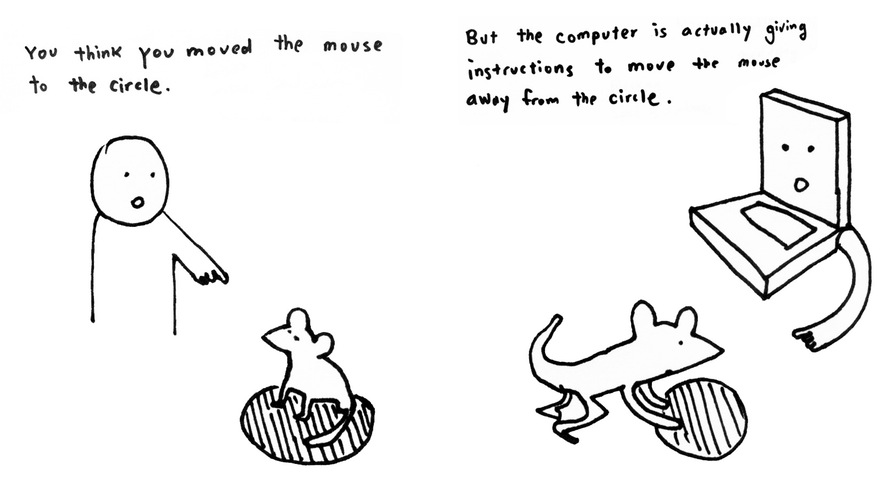 You think you moved the mouse
to the circle.
But the computer is actually giving
instructions to move the mouse
away from the circle.